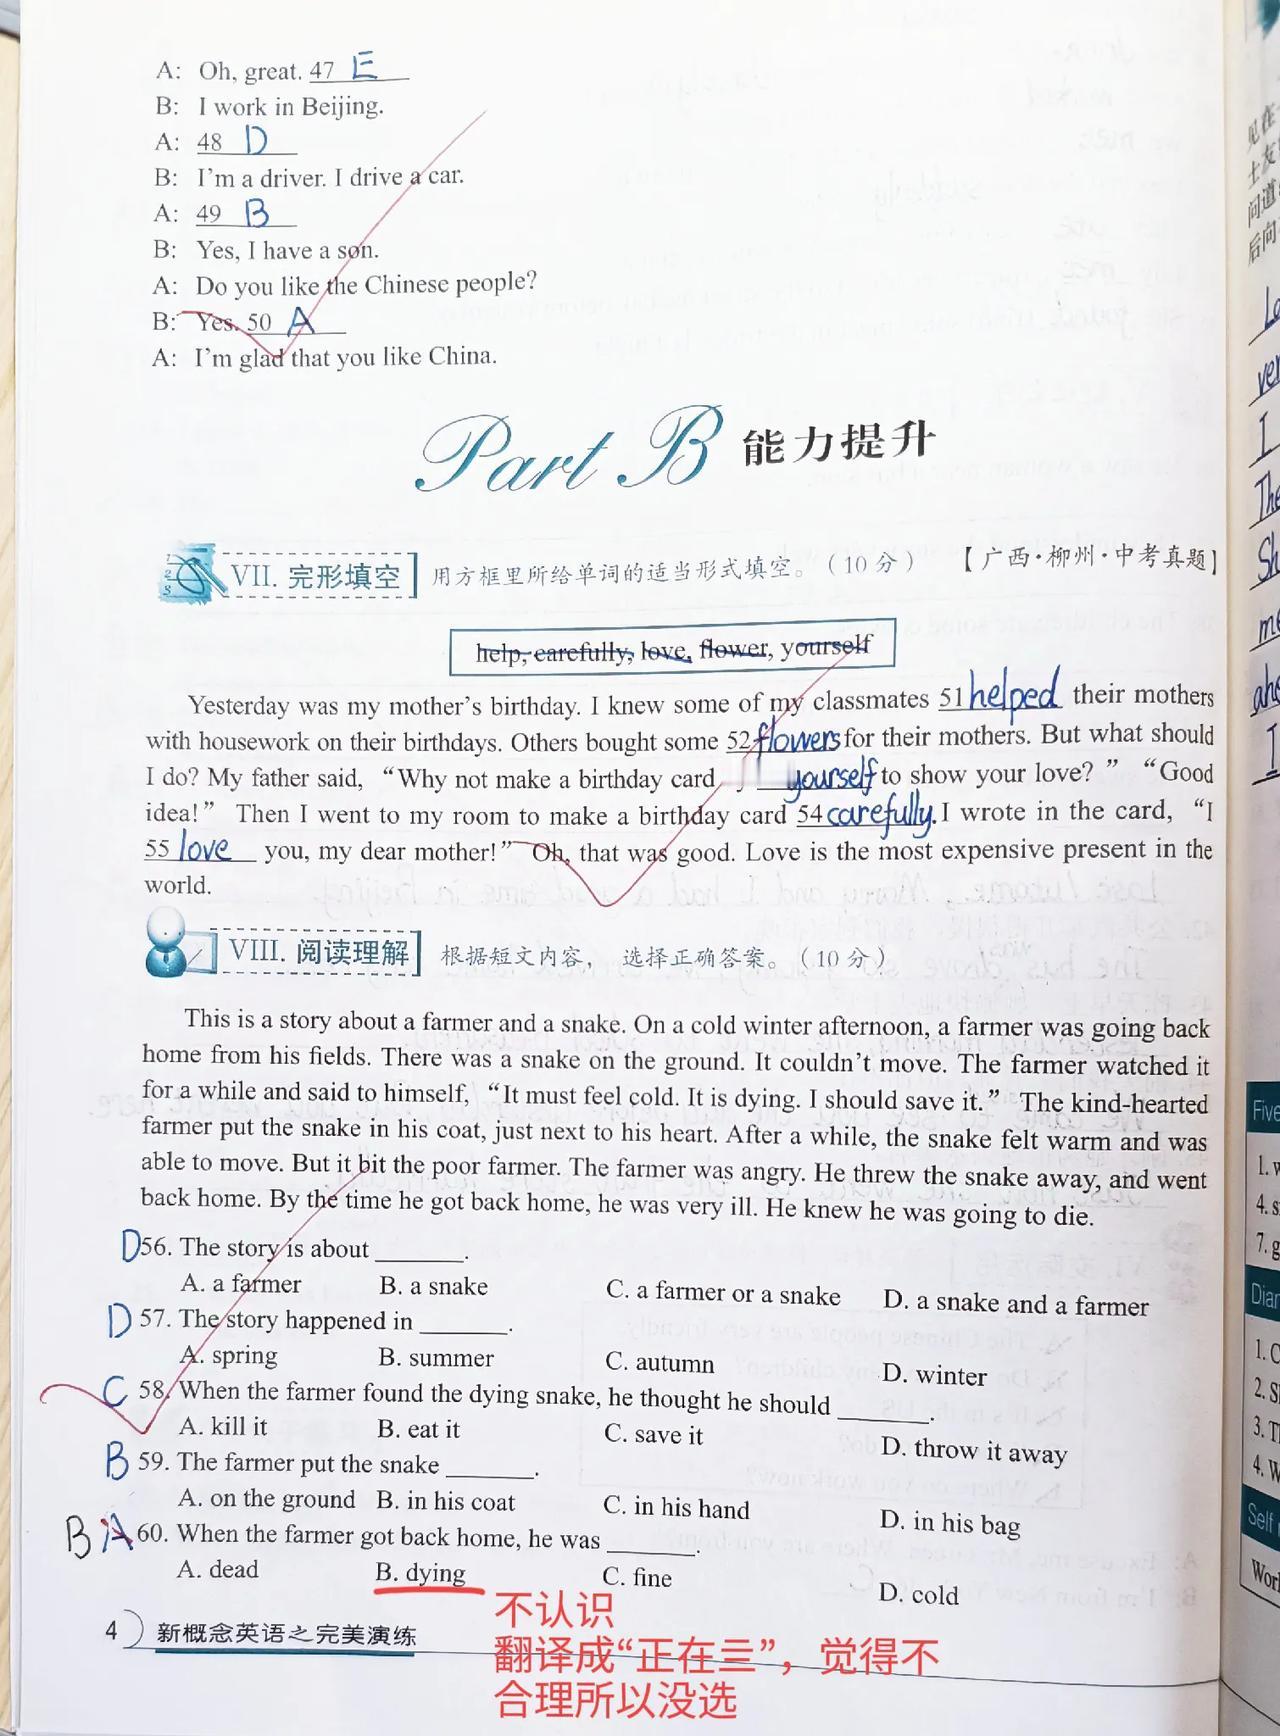 A: Oh, great. 47 E
B: I work in Beijing.
A: 48 D
B: I'm a driver. I drive a car.
A: 49 B
B: Yes, I have a son.
A: Do you like the Chinese people?
B: Yes. 50 A
A: I'm glad that you like China.
Part B 能力提升
VII. 完形填空 用方框里所给单词的适当形式填空。（10分） 【广西·柳州·中考真题】
help, carefully, love, flower, yourself
Yesterday was my mother's birthday. I knew some of my classmates 51 helped their mothers
with housework on their birthdays. Others bought some 52 flowers for their mothers. But what should
I do? My father said, “Why not make a birthday card yourself to show your love?” “Good
idea!” Then I went to my room to make a birthday card 54 carefully. I wrote in the card, “I
55 love you, my dear mother!” Oh, that was good. Love is the most expensive present in the
world.
VIII. 阅读理解 根据短文内容，选择正确答案。（10分）
This is a story about a farmer and a snake. On a cold winter afternoon, a farmer was going back
home from his fields. There was a snake on the ground. It couldn't move. The farmer watched it
for a while and said to himself, “It must feel cold. It is dying. I should save it.” The kind-hearted
farmer put the snake in his coat, just next to his heart. After a while, the snake felt warm and was
able to move. But it bit the poor farmer. The farmer was angry. He threw the snake away, and went
back home. By the time he got back home, he was very ill. He knew he was going to die.
D 56. The story is about ______.
A. a farmer B. a snake C. a farmer or a snake D. a snake and a farmer
D 57. The story happened in ______.
A. spring B. summer C. autumn D. winter
C 58. When the farmer found the dying snake, he thought he should ______.
A. kill it B. eat it C. save it D. throw it away
B 59. The farmer put the snake ______.
A. on the ground B. in his coat C. in his hand D. in his bag
B A 60. When the farmer got back home, he was ______.
A. dead B. dying C. fine D. cold
不认识
翻译成“正在亖”，觉得不
合理所以没选
4 新概念英语之完美演练